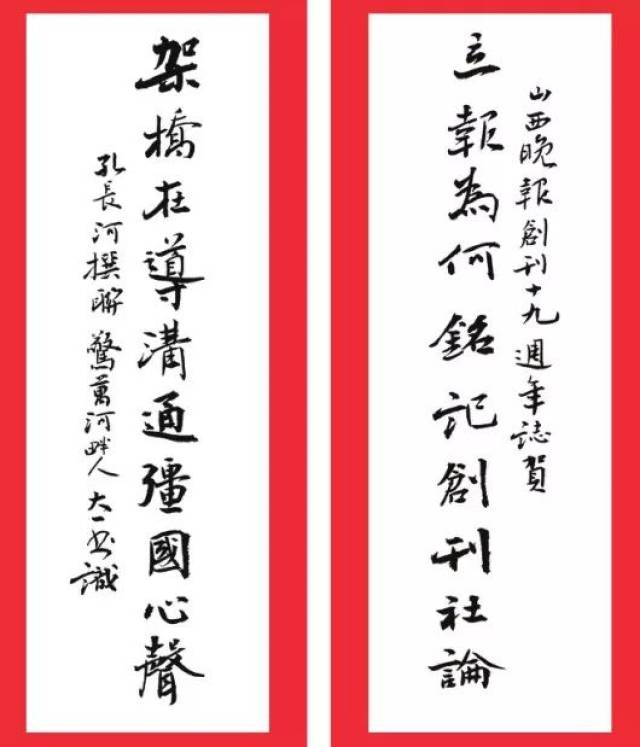 山西晚報創刊十九週年誌賀
立報為何銘記創刊社論
架橋在導溝通彊國心聲
孔長河撰聯 驚萬河畔人 大一书識